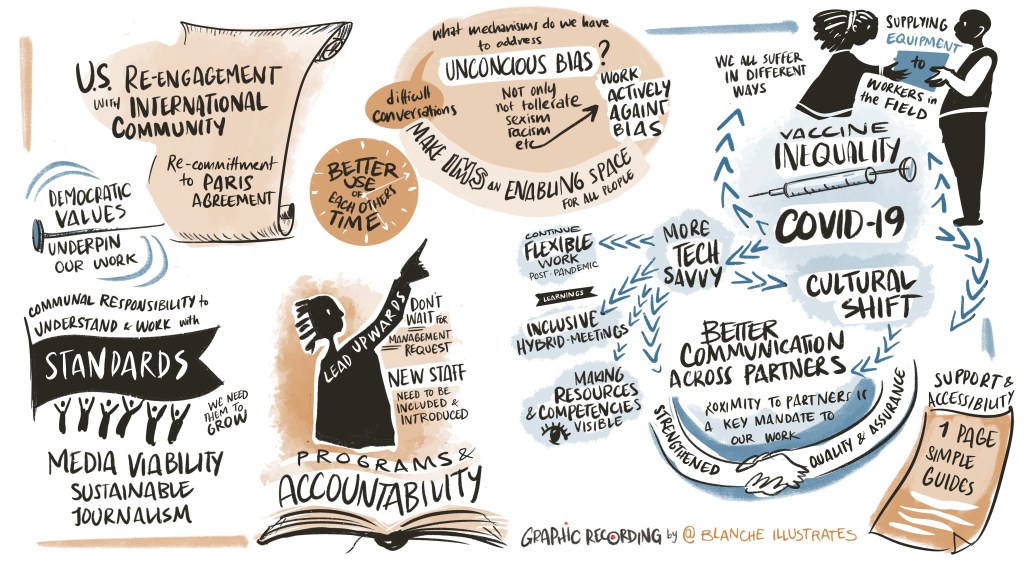 U.S. RE-ENGAGEMENT
WITH INTERNATIONAL
COMMUNITY
Re-committment
to PARIS
AGREEMENT
DEMOCRATIC
VALUES
UNDERPIN
OUR WORK
what mechanisms do we have
to address
UNCONCIOUS BIAS?
difficult
conversations
Not only
not tollerate
sexism
racism
etc
WORK
ACTIVELY
AGAINT
BIAS
MAKE IMS an ENABLING SPACE
FOR ALL PEOPLE
BETTER
USE
OF
EACH OTHERS
TIME
COMMUNAL RESPONSIBILITY to
UNDERSTAND & WORK with
STANDARDS
WE NEED
THEM TO
GROW
MEDIA VIABILITY
SUSTAINABLE
JOURNALISM
LEAD UPWARDS
DON'T
WAIT FOR
MANAGEMENT
REQUEST
NEW STAFF
NEED TO BE
INCLUDED &
INTRODUCED
PROGRAMS &
ACCOUNTABILITY
WE ALL SUFFER
IN DIFFERENT
WAYS
SUPPLYING
EQUIPMENT
to
WORKERS in
the FIELD
VACCINE
INEQUALITY
COVID-19
MORE
TECH
SAVVY
CULTURAL
SHIFT
CONTINUE
FLEXIBLE
WORK
POST-PANDEMIC
LEARNINGS
INCLUSIVE
HYBRID-MEETINGS
MAKING
RESOURCES
& COMPETENCIES
VISIBLE
BETTER
COMMUNICATION
ACROSS PARTNERS
ROXIMITY TO PARTNERS IS
A KEY MANDATE TO
OUR WORK
STRENGTHENED
QUALITY & ASSURANCE
SUPPORT &
ACCESSIBILITY
1 PAGE
SIMPLE
GUIDES
GRAPHIC RECORDING by @ BLANCHE ILLUSTRATES